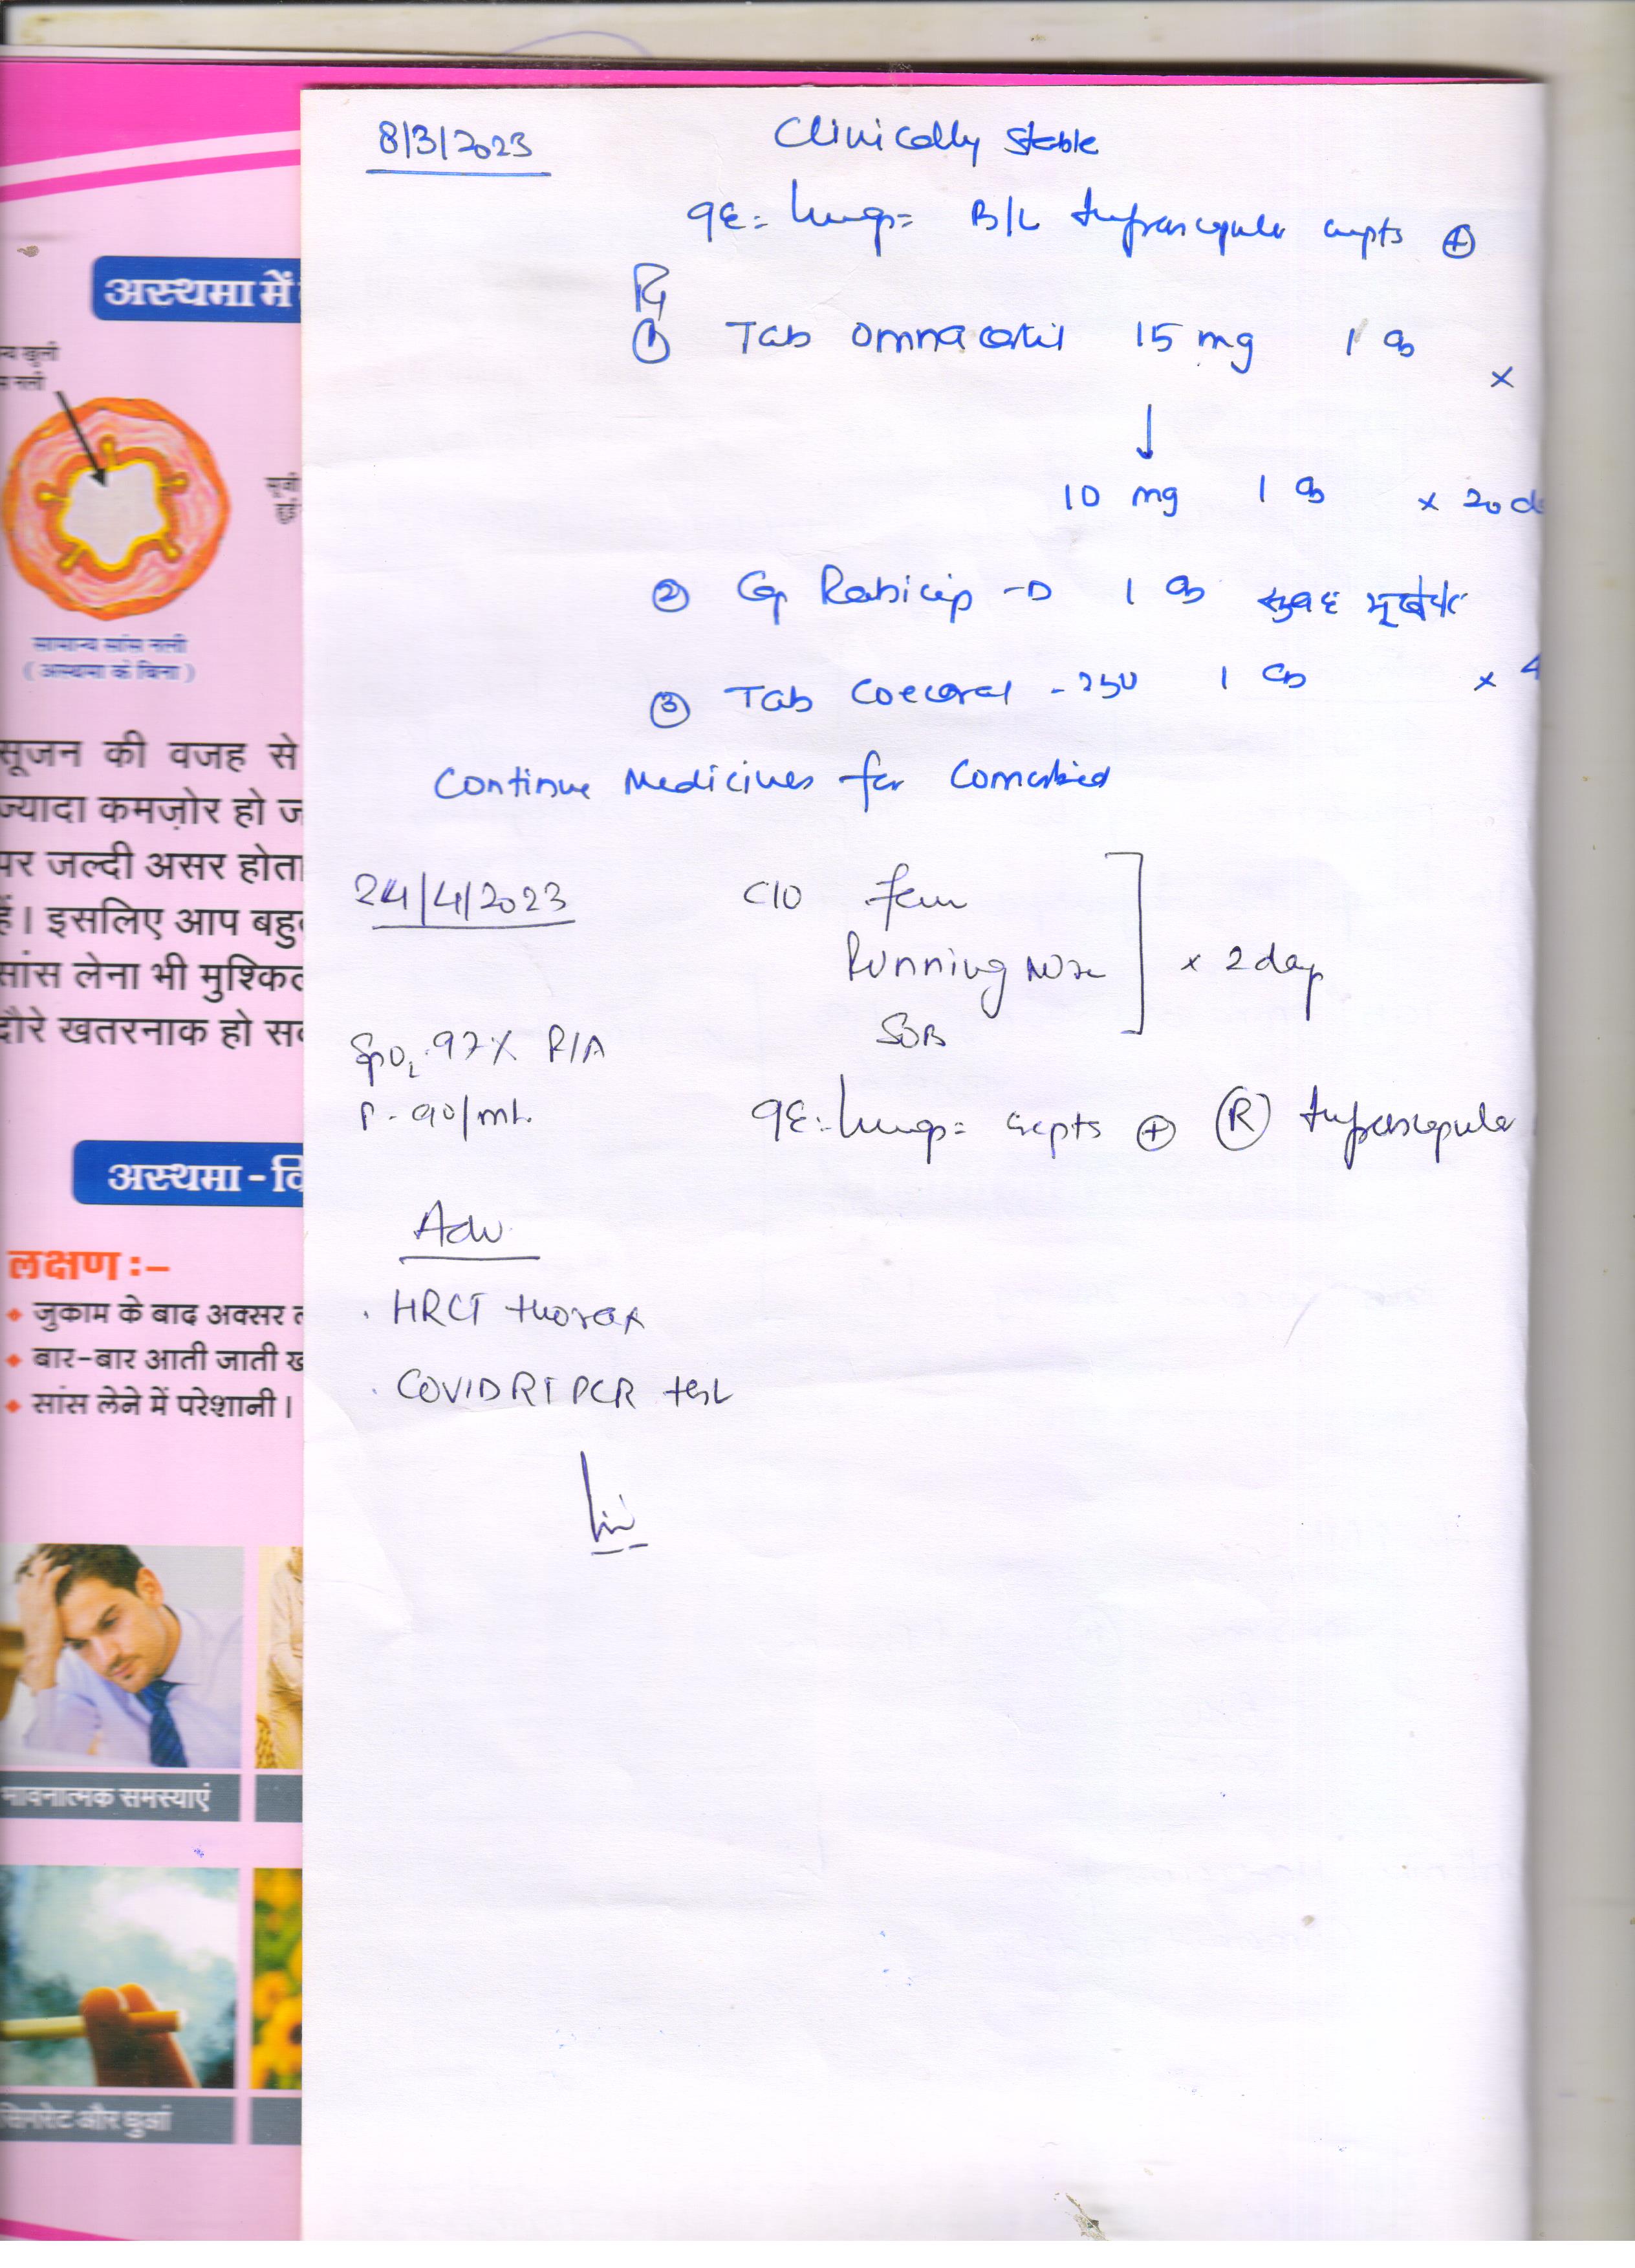 8/3/2023 Clinically Stable
O/E: Lungs = B/L Infrascapular crepts ⊕
Rx
① Tab Omnacortil 15 mg 1 OD ×
↓
10 mg 1 OD × 20 d
② Cap Rabicip - D 1 OD सुबह
③ Tab 250 1 OD × 4
Continue Medicines for Comorbid
24/4/2023 C/O Fever
Running Nose × 2 days
SOB
SpO2 97% R/A
P - 90/mt.
O/E: Lungs = crepts ⊕ Ⓡ Infrascapular
Adv
. HRCT thorax
. COVID RT PCR test
अस्थमा में
सामान्य सांस नली
(अस्थमा के बिना)
सूजन की वजह से
ज्यादा कमज़ोर हो ज
पर जल्दी असर होता
हैं। इसलिए आप बहु
सांस लेना भी मुश्किल
दौरे खतरनाक हो सक
अस्थमा - वि
लक्षण :-
जुकाम के बाद अक्सर
बार-बार आती जाती ख
सांस लेने में परेशानी।
भावनात्मक समस्याएं
सिगरेट और धुआं